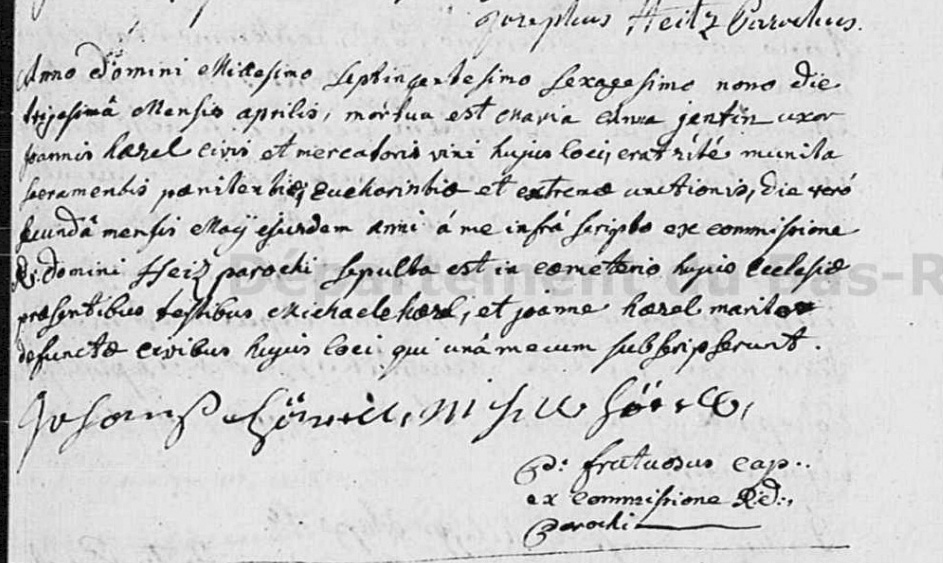 Josephus Heitz Parochus.
Anno Domini Millesimo septingentesimo sexagesimo nono die
trigesimâ Mensis aprilis, mortua est Maria Anna jentin uxor
joannis hærel civis et mercatoris vini hujus loci, erat rité munita
sacramentis pænitentiæ, Eucharistiæ et extremæ unctionis, die veró
secundâ mensis Maÿ ejusdem anni á me infrá scripto ex commissione
R: domini Heiz parochi sepulta est in cœmeterio hujus Ecclesiæ
præsentibus testibus Michaele hærel, et joanne hærel marito
defunctæ civibus hujus loci qui unâ mecum subscripserunt.
Département du Bas-R
P: fructuosus cap..
ex commissione Rd:,
Parochi